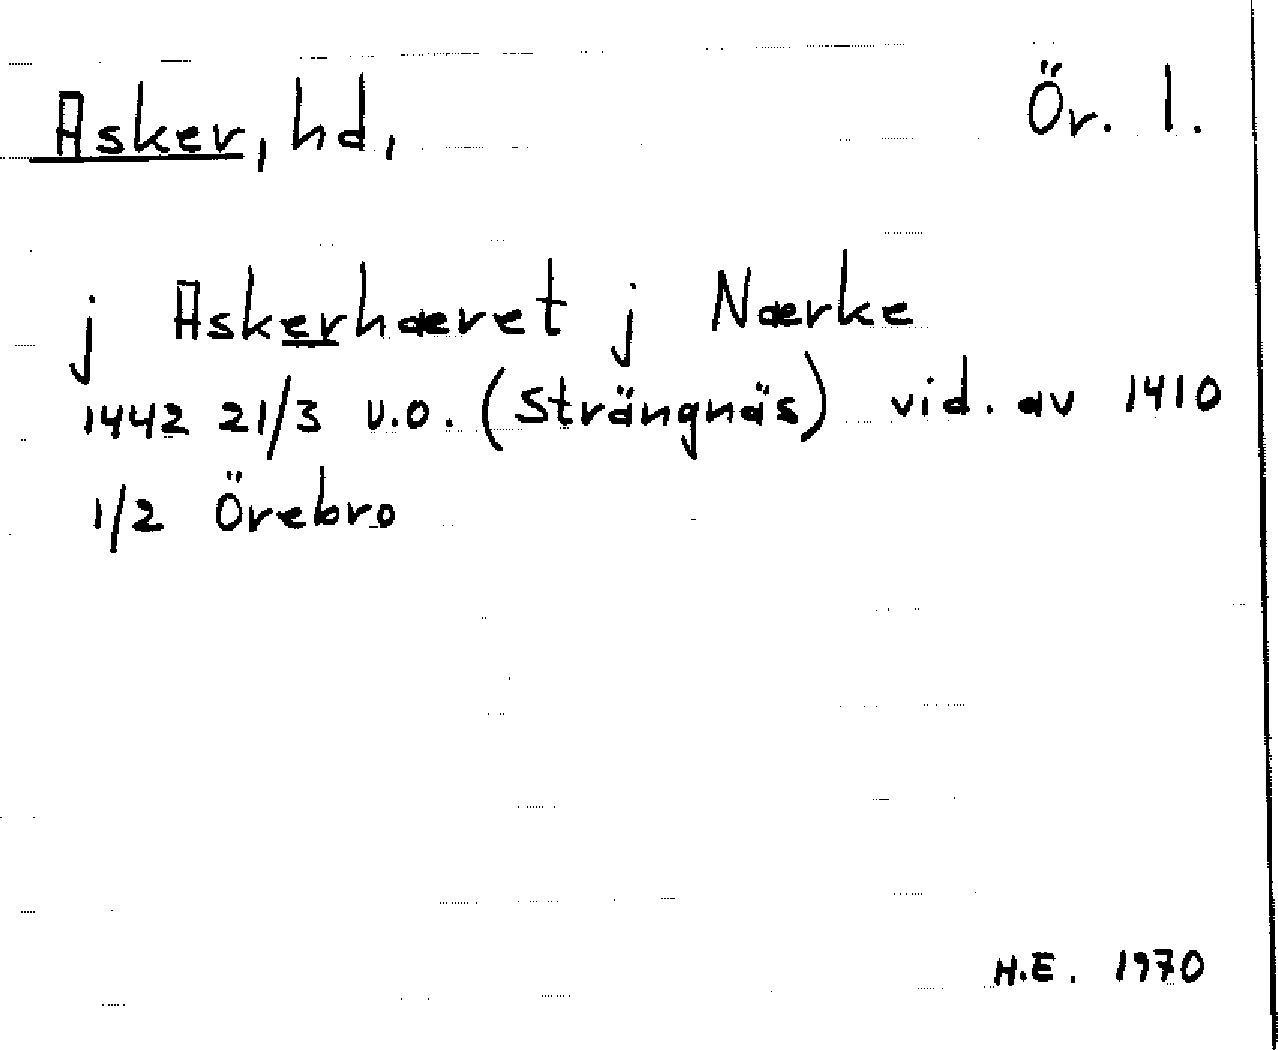 Asker, hd, Ör. l.
j Askerhæret j Nærke
1442 21/3 u.o. (Strängnäs) vid. av 1410
1/2 Örebro
H.E. 1970